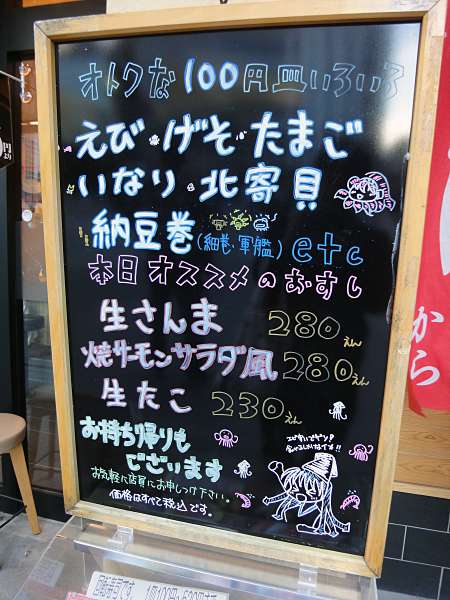 オトクな100円皿いろいろ
えび・げそ・たまご
いなり・北寄貝
納豆巻(細巻・軍艦)etc
本日オススメのおすし
生さんま 280えん
焼サーモンサラダ風 280えん
生たこ 230えん
お持ち帰りも
ございます
お気軽に店員にお申しつけ下さい。
価格はすべて税込です。
から